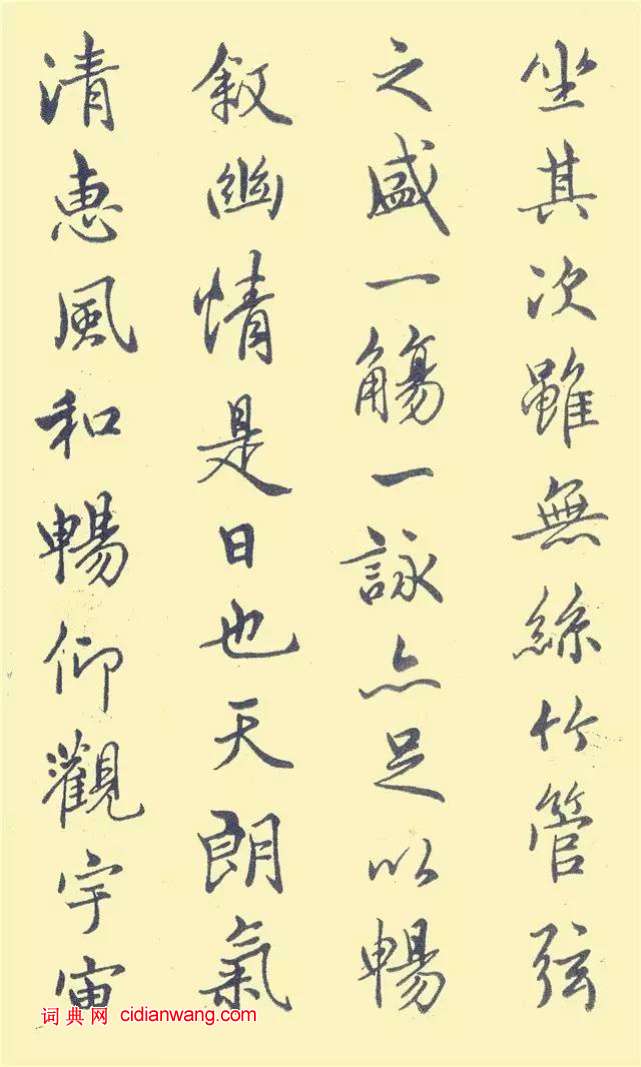 坐其次雖無絲竹管弦
之盛一觴一詠亦足以暢
敘幽情是日也天朗氣
清惠風和暢仰觀宇宙
词典网 cidianwang.com